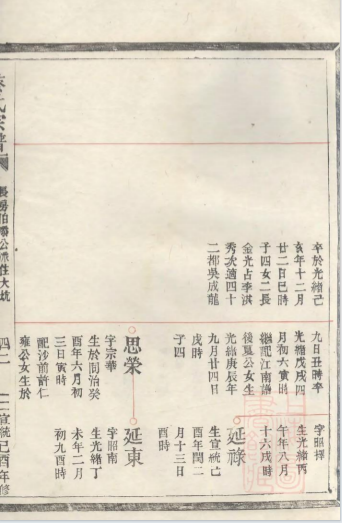 卒於光緒己
亥年十二月
廿二日巳時
子四女二長
金光占李淇
秀次適四十
二都吳成龍
九日丑時卒
光緒戊戌四
月初六寅時
繼配江南
後公女生
光緒庚辰年
九月廿四日
戌時
子四
思榮
字宗華
生於同治癸
酉年六月初
三日寅時
配沙前許仁
雍公女生於
字昭擇
生光緒丙
午年八月
十六戌時
延祿
生宣統己
酉年閏二
月十三日
酉時
延東
字昭南
生光緒丁
未年二月
初九酉時
氏宗譜
長房伯公派住大坑
四二
宣統己酉年修